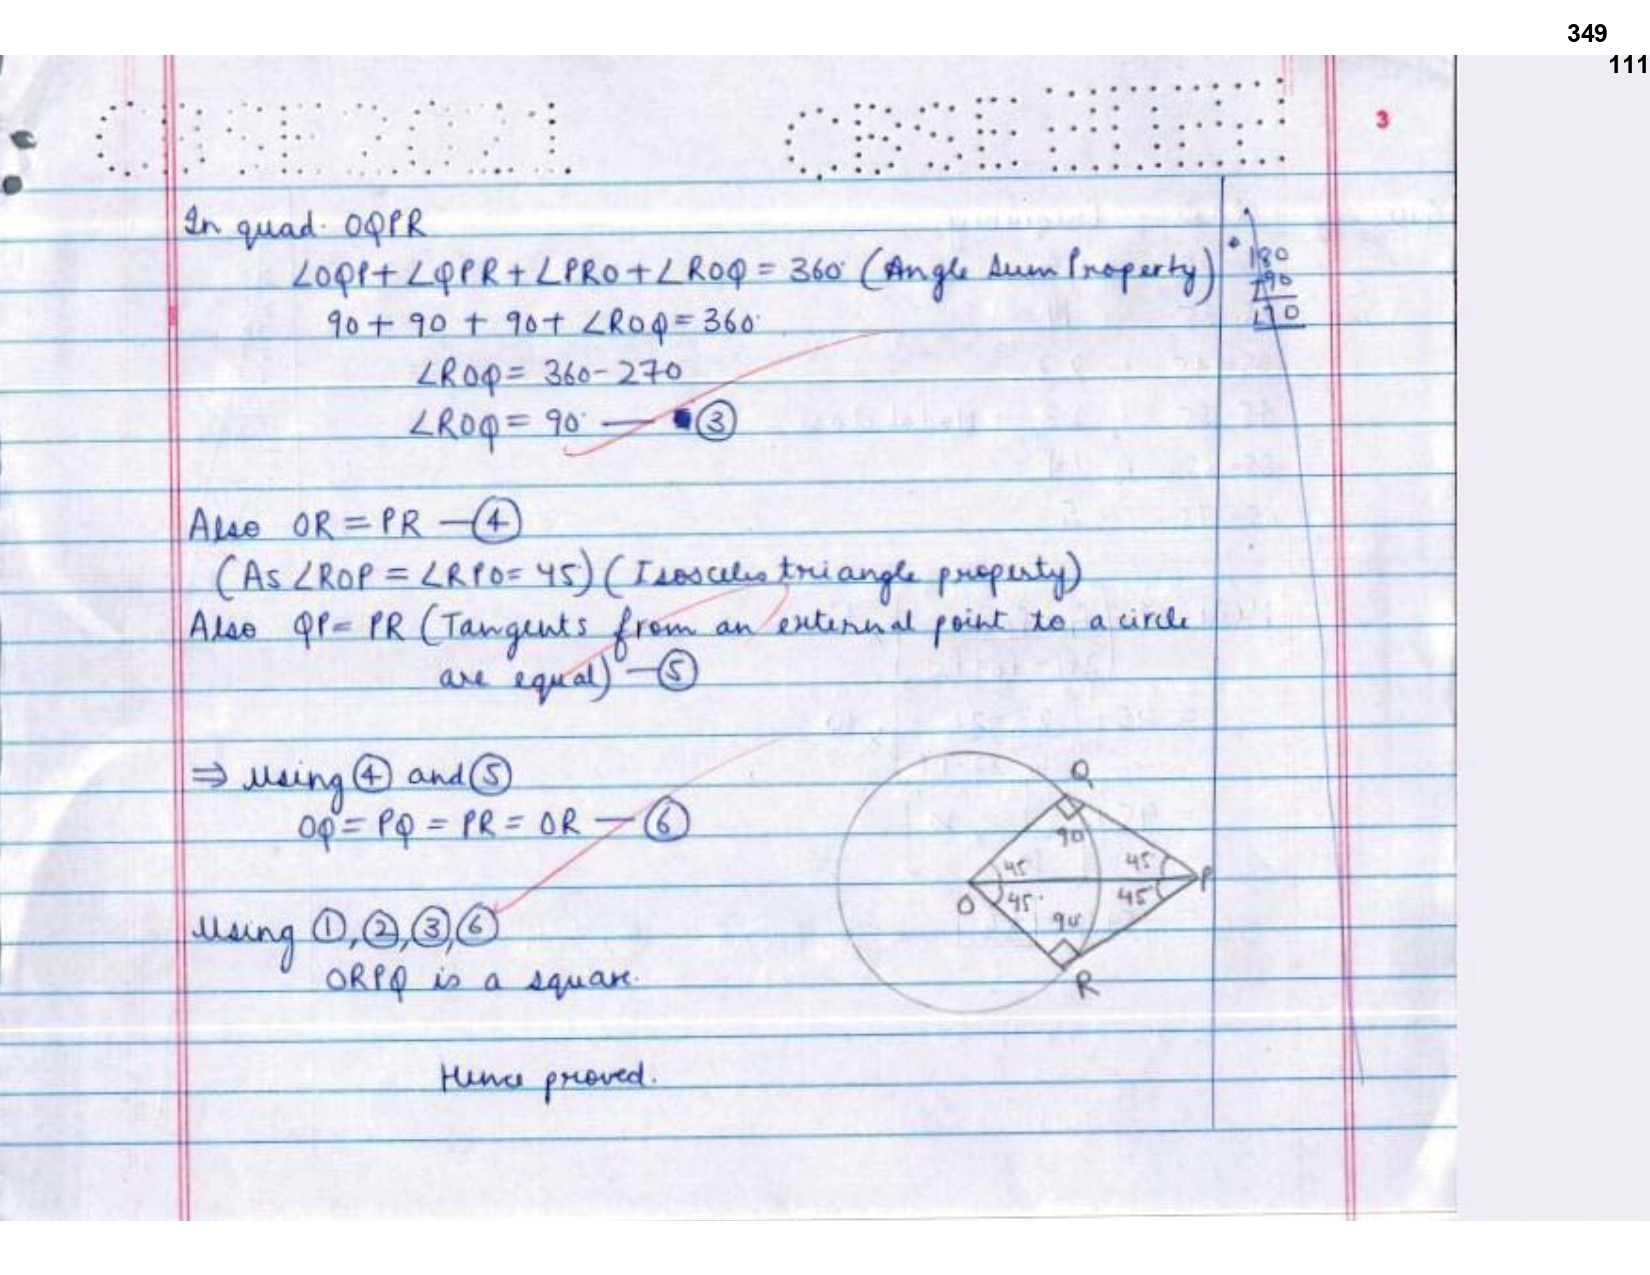 349
111
3
In quad. OQPR
∠OQP+∠QPR+∠PRO+∠ROQ = 360° (Angle Sum Property)
90+ 90 + 90+ ∠ROQ=360°
∠ROQ= 360-270
∠ROQ= 90° — ③
180
90
Also OR = PR —④
(As ∠ROP = ∠RPO= 45) (Isosceles triangle property)
Also QP= PR (Tangents from an external point to a circle
are equal) —⑤
⇒ Using ④ and ⑤
OQ = PQ = PR = OR — ⑥
Q
90
45
45°
O
45°
45°
P
90
R
Using ①,②,③,⑥
ORPQ is a square.
Hence proved.